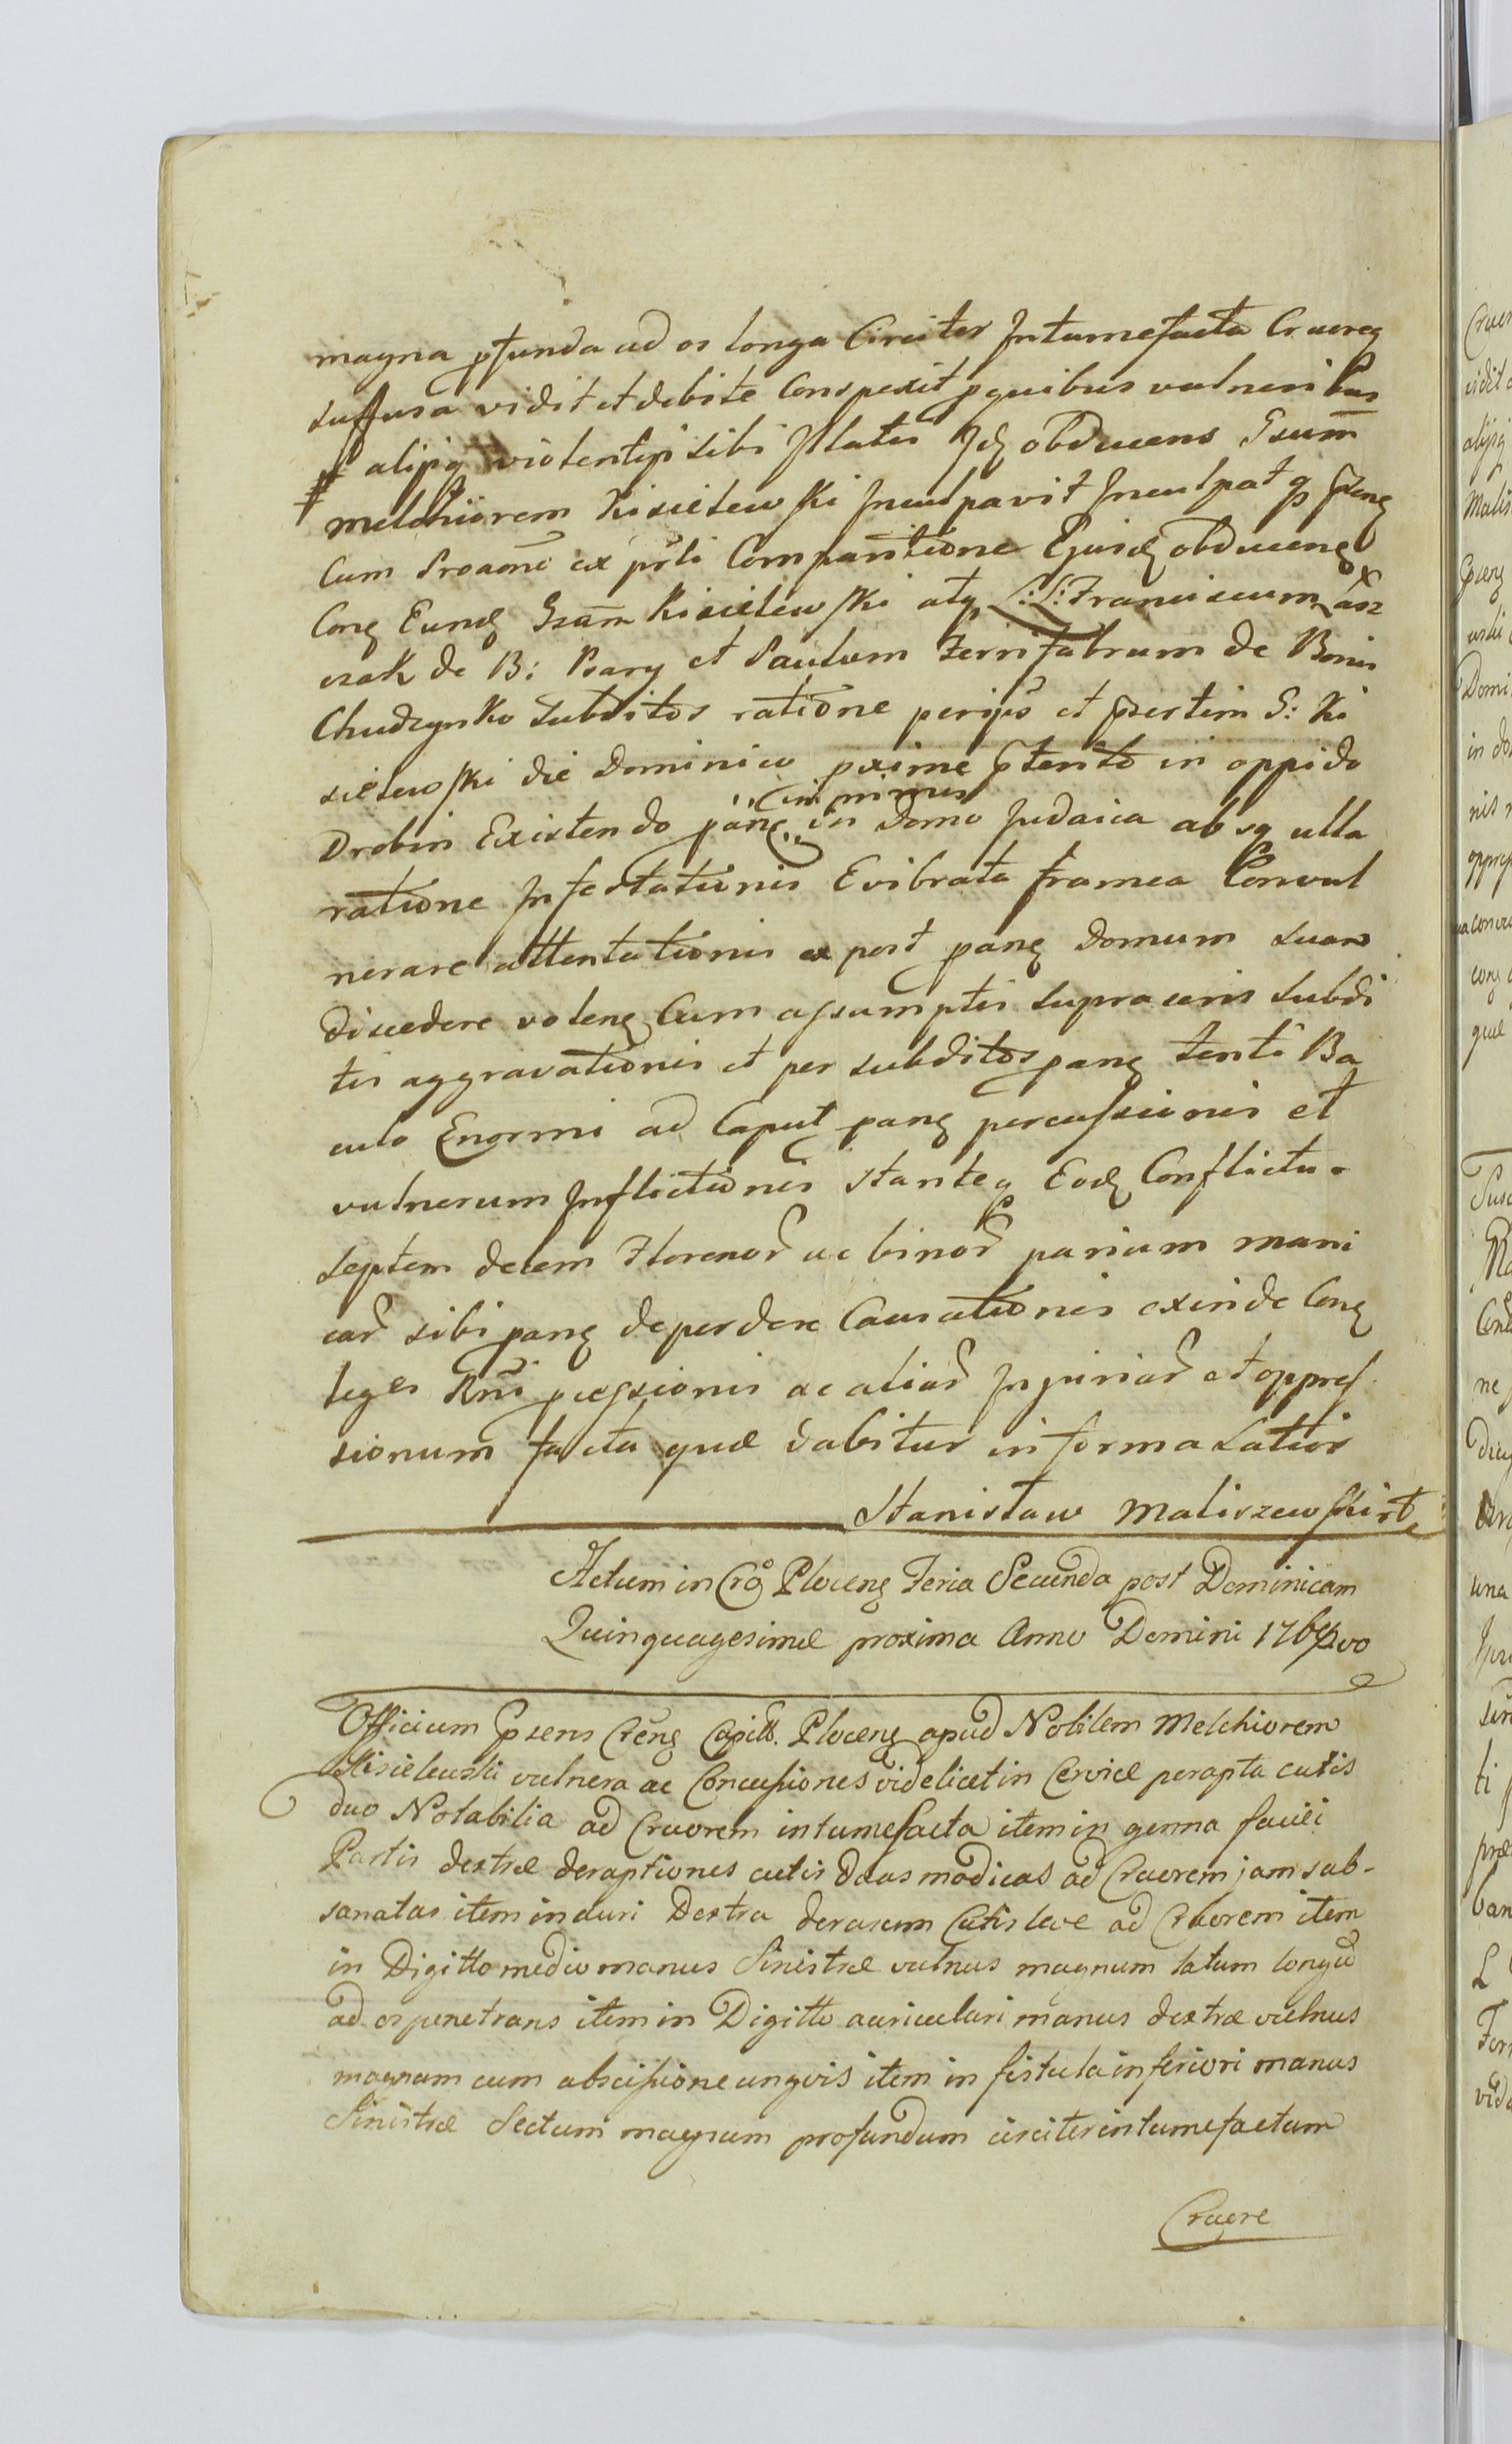 magna pfunda ad os longa Circiter Intumefacta Cruoreq
suffusa vidit et debite Conspexit p quibus vulneribus
# alijsq violentijs sibi Illatis Idq obducens Gsum
melchiorem Kisielewski Inculpavit Inculpat q psens
Cum Proaone ex psti Comparitione Ejusd obducens
Cong Eund Gsam Kisielewski atq L:L: Franciscum Łasz
czak de B: Psary et Paulum Ferrifabrum de Bonis
Chudzynko Subditos ratione perijs et psertim G: Ki
sielewski die Dominico pxime ptento in oppido
in primis
Drobin Existendo pang in domo Judaica absq ulla
ratione Infestationis Evibrata framea Convul
nerare attentationis ex post pang domum suam
discedere volens Cum assumptis supra scris subdi
tis aggravationis et per subditos pang tenti Ba
culo Enormi ad Caput pang percussionis et
vulnerum Inflictionis stanteq Eod Conflictu
septem decem Florenor ac binor parium mani
car sibi pang deperdere Causationis exinde Cong
leges Rni pgressionis ac aliar Injuriar et oppres
sionum facta quae dabitur informa Latior
Stanisław Maliszewski st
Actum in Cro Plocens Feria Secunda post Dominicam
Quinquagesimae proxima Anno Domini 176
Officium Psens Crens Capitt. Plocens apud Nobilem Melchiorem
Kisielewski vulnera ac Concussiones videlicet in Cervice perapta cutis
duo Notabilia ad Cruorem intumefacta item in genna faciei
Partis dextrae deraptiones cutis duas modicas ad Cruorem jam sub-
sanatas item in auri Dextra derasum Cutis leve ad Cruorem item
in Digitto medio manus Sinistrae vulnus magnum latum longu
ad os penetrans item in Digitto auriculari manus dextrae vulnus
magnum cum abscissione ungvis item in fistula inferiori manus
Sinistrae Sectum magnum profundum circiter intumefactum
Cruore